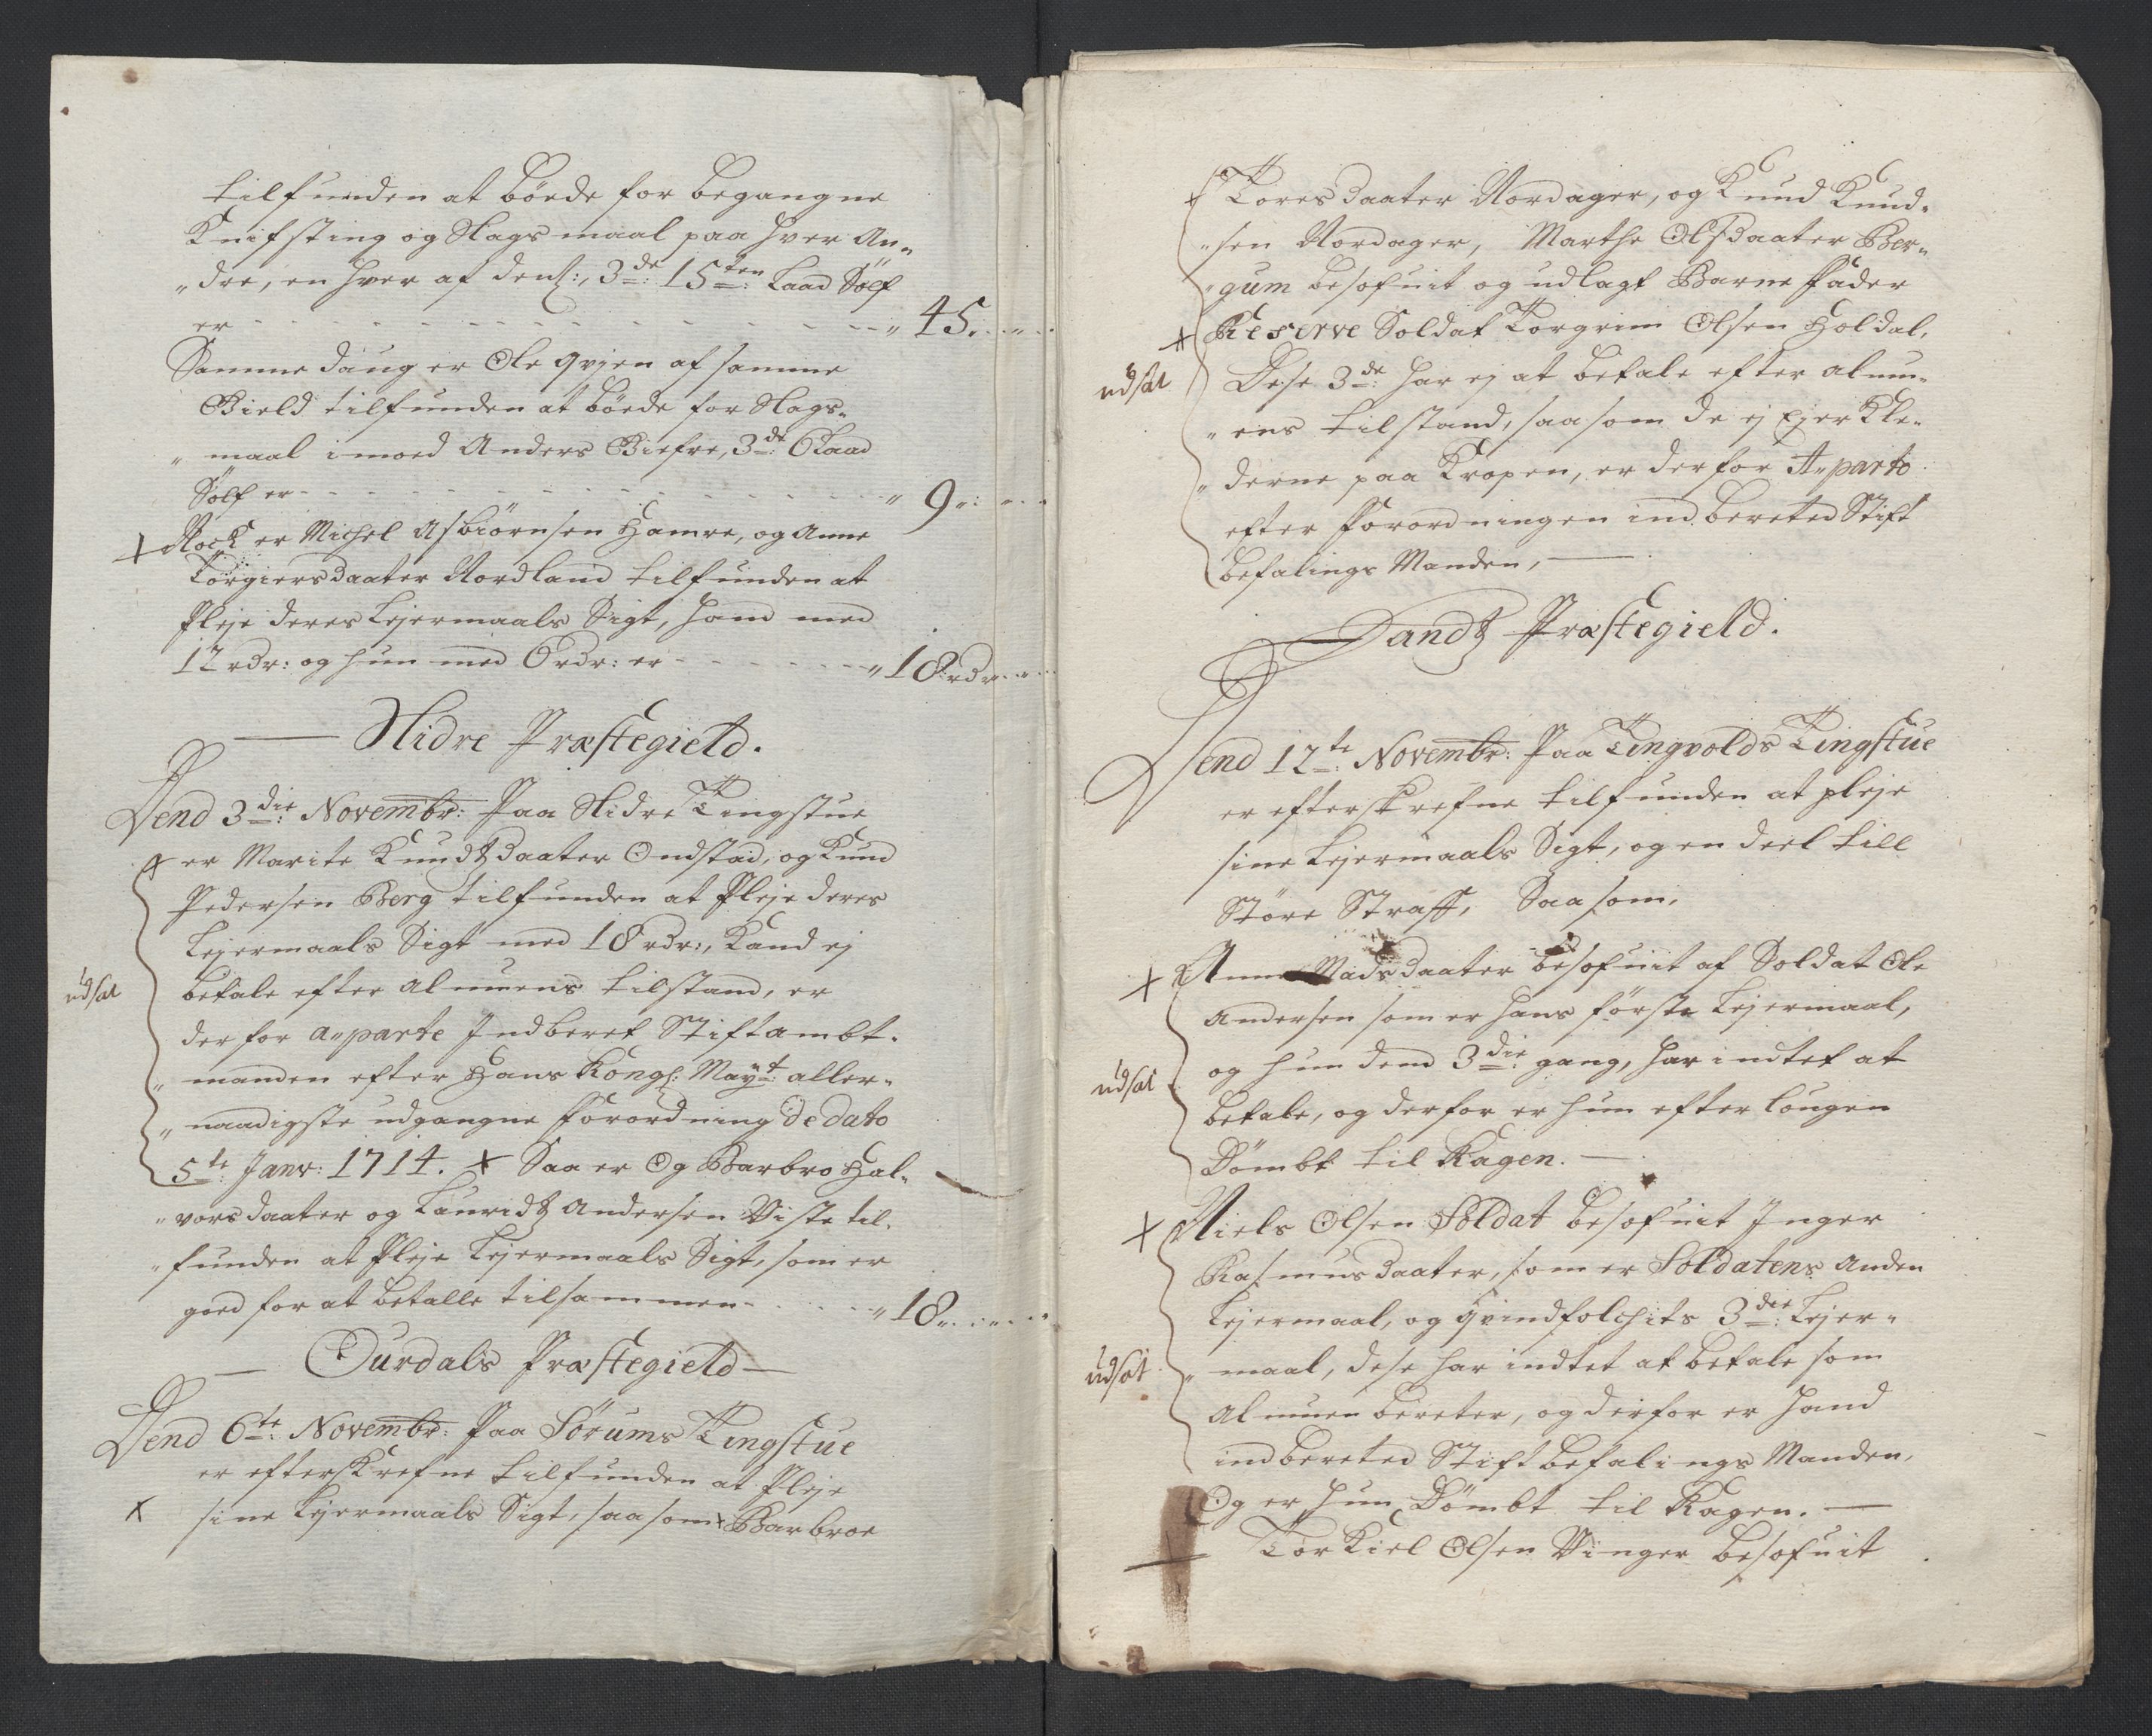 tilfunden at böede for begangne
Knifsting og Slagsmaal paa hver An„
„dre, en hver af dem:, 3de: 15ten: Laad Sölf
er - - - „ 45 „ - „ -
Samme daug er Ole qvien af samme
Gield tilfunden at böede for Slags„
„maal imoed Anders Giefre, 3de: 6 Laad
Sölf er - - - „ 9 „: „ -
+ Nock er Michel Asbiörnsen Hamre, og Anne
Torgiersdaater Nordland tilfunden at
Pleje deres Lejermaals Sigt, hand med
12 rdr: og hun med 6 rdr: er - - - „ 18 rdr „ -
Slidre Præstegield.
Dend 3die: Novembr: Paa Slidre Tingstue
+ er Marite Knudtzdaater Ondstad, og Knud
Pedersen Berg tilfunden at Pleje deres
Lejermaals Sigt med 18 rdr:, Kand ej
udsat
betale efter Almuens tilstand, er
derfor a„parte Indberet Stiftambt„
„manden efter Hans Kongl: Mayt: aller„
„naadigste udgangne Forordning de dato
5te: Janr: 1714. + Saa er Og Barbro Hal„
„vorsdaater og Lauridtz Andersen Viste til„
„funden at Pleje Lejermaals Sigt, som er
goed for at betalle tilsammen - - - „ 18 „ - „ -
Ourdals Præstegield
Dend 6te: Novembr: Paa Sörums Tingstue
er efterskrefne tilfunden at Pleje
+ sine Lejermaals Sigt, saasom + Barbroe
+ Toresdaater Nordager, og Knud Knud„
„sen Nordager, Marthe Olsdaater Ber„
„gum besofuit og udlagt Barne Fader
+ Reserve Soldat Torgrim Olsen Holdal,
udsat
Dese 3de: har ej at betale efter almu„
„ens tilstand, saasom de ej Ejer Kle„
„derne paa Kropen, er derfor A„parto
efter Forordningen indbereted Stift
befalings Manden,
Landtz Præstegield.
Dend 12te: Novembr: Paa Tingvolds Tingstue
er efterskrefne tilfunden at pleje
sine Lejermaals Sigt, og en deel till
Störe Straff, Saasom,
+ Anne Madsdaater besofuit af Soldat Ole
Andersen som er hans förste Lejermaal,
og hun dend 3die: gang, har indtet at
udsat
betale, og derfor er hun efter Lougen
Dömbt til Kagen.
+ Niels Olsen Soldat besofuit Inger
Rasmusdaater, som er Soldatens Anden
Lejermaal, og qvindfolchits 3die: Lejer„
udsat
„maal, dese har indtet at betale som
Almuen bereter, og derfor er hand
indbereted Stiftbefalings Manden,
Og er hun Dömbt til Kagen.
Torkiel Olsen Vinger besofuit